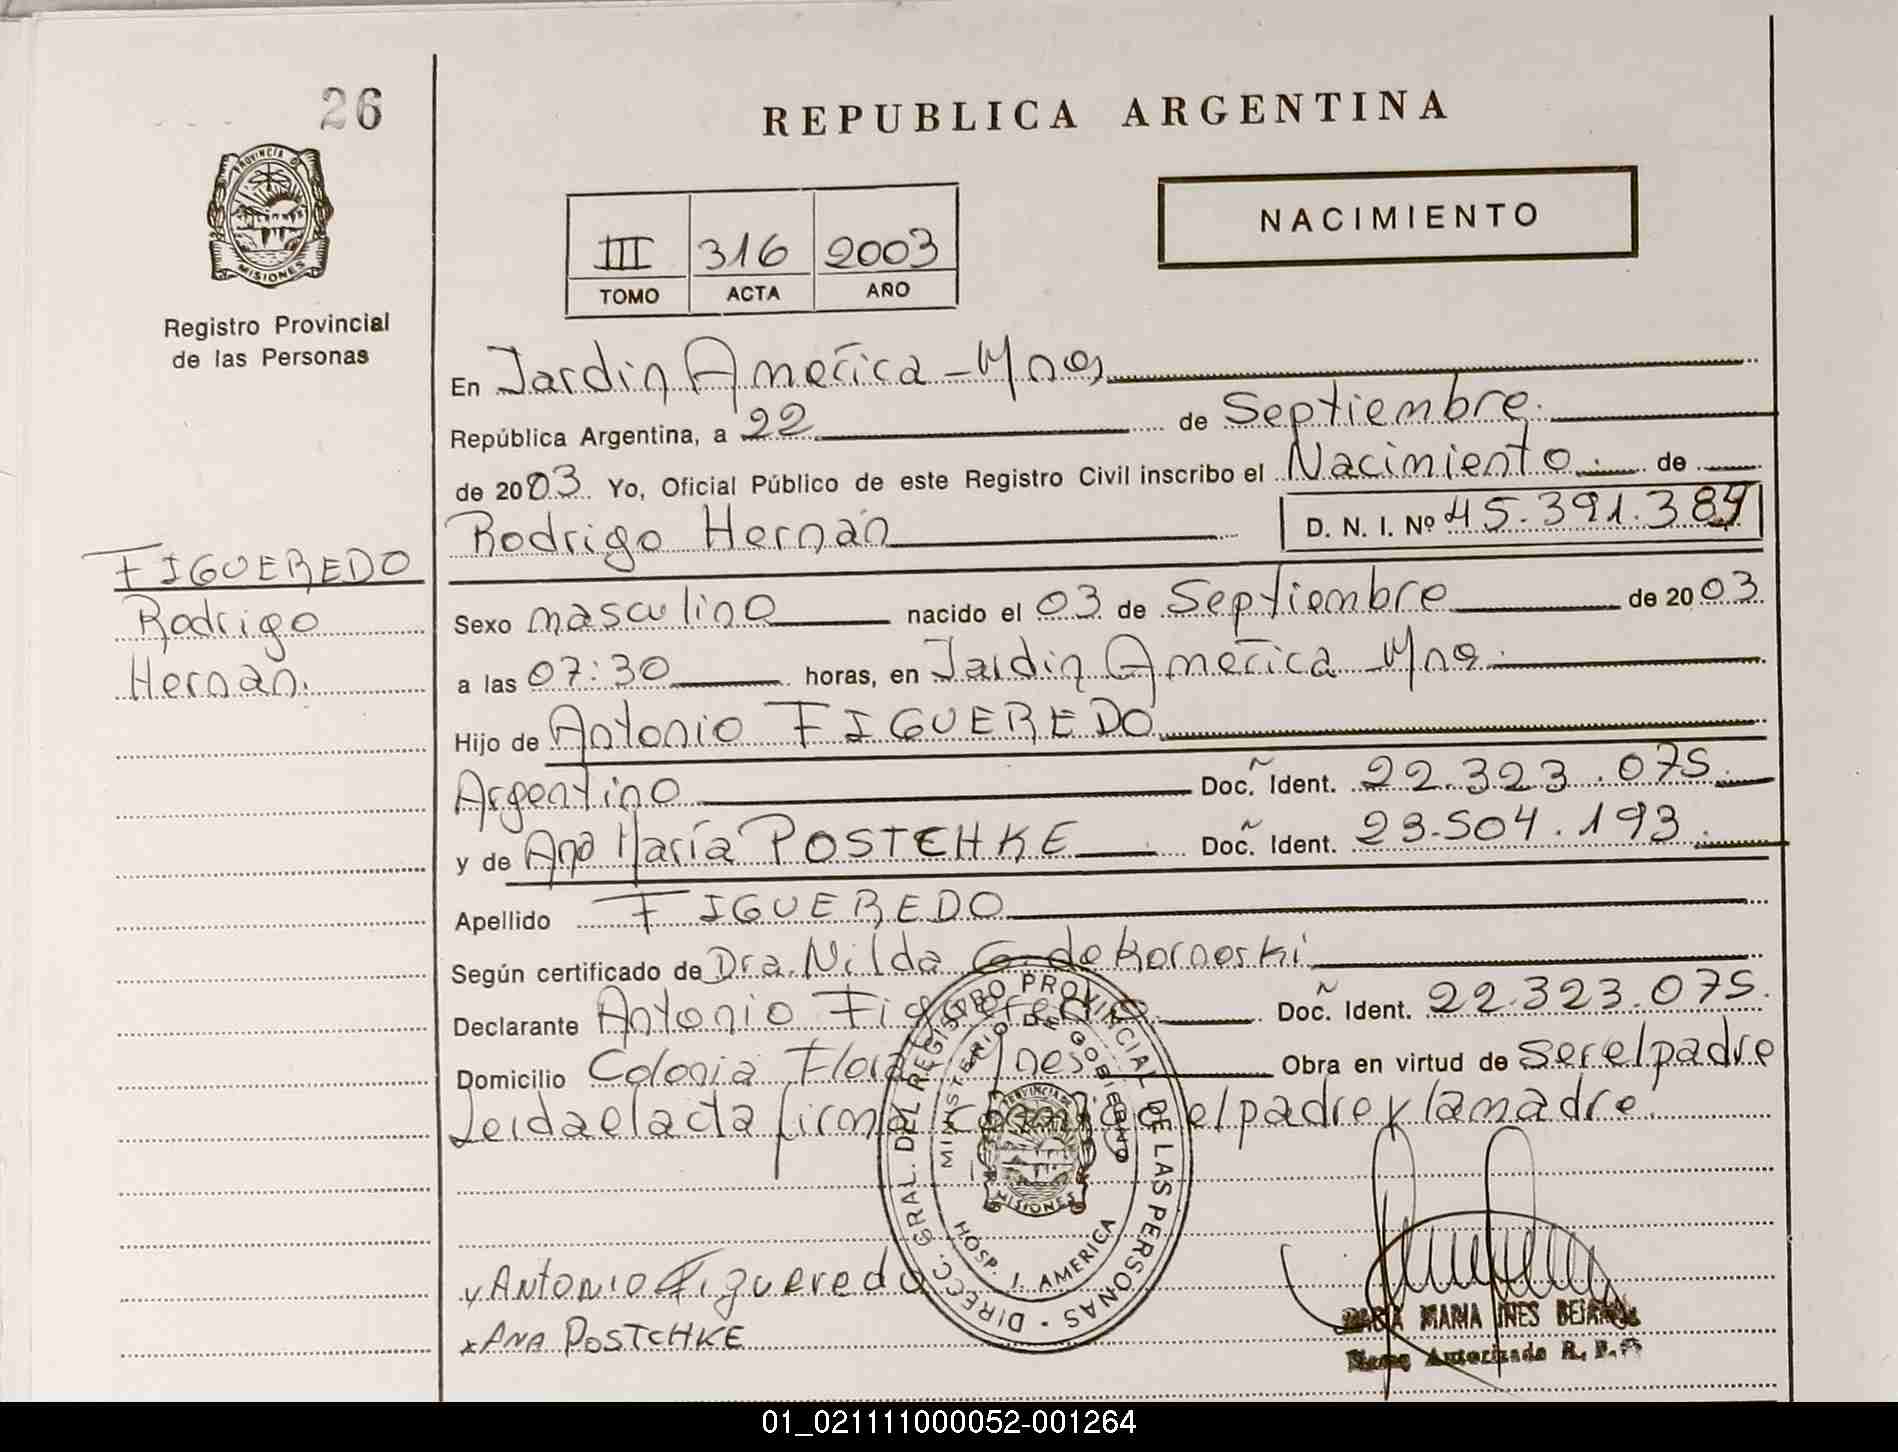 26
PROVINCIA DE
MISIONES
Registro Provincial
de las Personas
FIGUEREDO
Rodrigo
Hernán.
REPUBLICA ARGENTINA
NACIMIENTO
III 316 2003
TOMO ACTA AÑO
En Jardín América - Mnes
República Argentina, a 22 de Septiembre.
de 2003 Yo, Oficial Público de este Registro Civil inscribo el Nacimiento de
Rodrigo Hernán D. N. I. Nº 45.391.387
Sexo masculino nacido el 03 de Septiembre de 2003
a las 07:30 horas, en Jardín América Mnes.
Hijo de Antonio FIGUEREDO
Argentino Doc. Ident. 22.323.075.
y de Ana María POSTCHKE Doc. Ident. 23.504.193.
Apellido FIGUEREDO
Según certificado de Dra. Nilda G. de
Declarante Antonio Figueredo Doc. Ident. 22.323.075.
Domicilio Colonia Flora Ines Obra en virtud de ser el padre
Leida el acta firma conmigo el padre y la madre.
DIRECC. GRAL. DEL REGISTRO PROVINCIAL DE LAS PERSONAS
MINISTERIO DE GOBIERNO
PROVINCIA DE
MISIONES
HOSP. J. AMERICA
Antonio Figueredo
x ANA POSTCHKE
MARIA INES
Autorizada R. P.
01_021111000052-001264